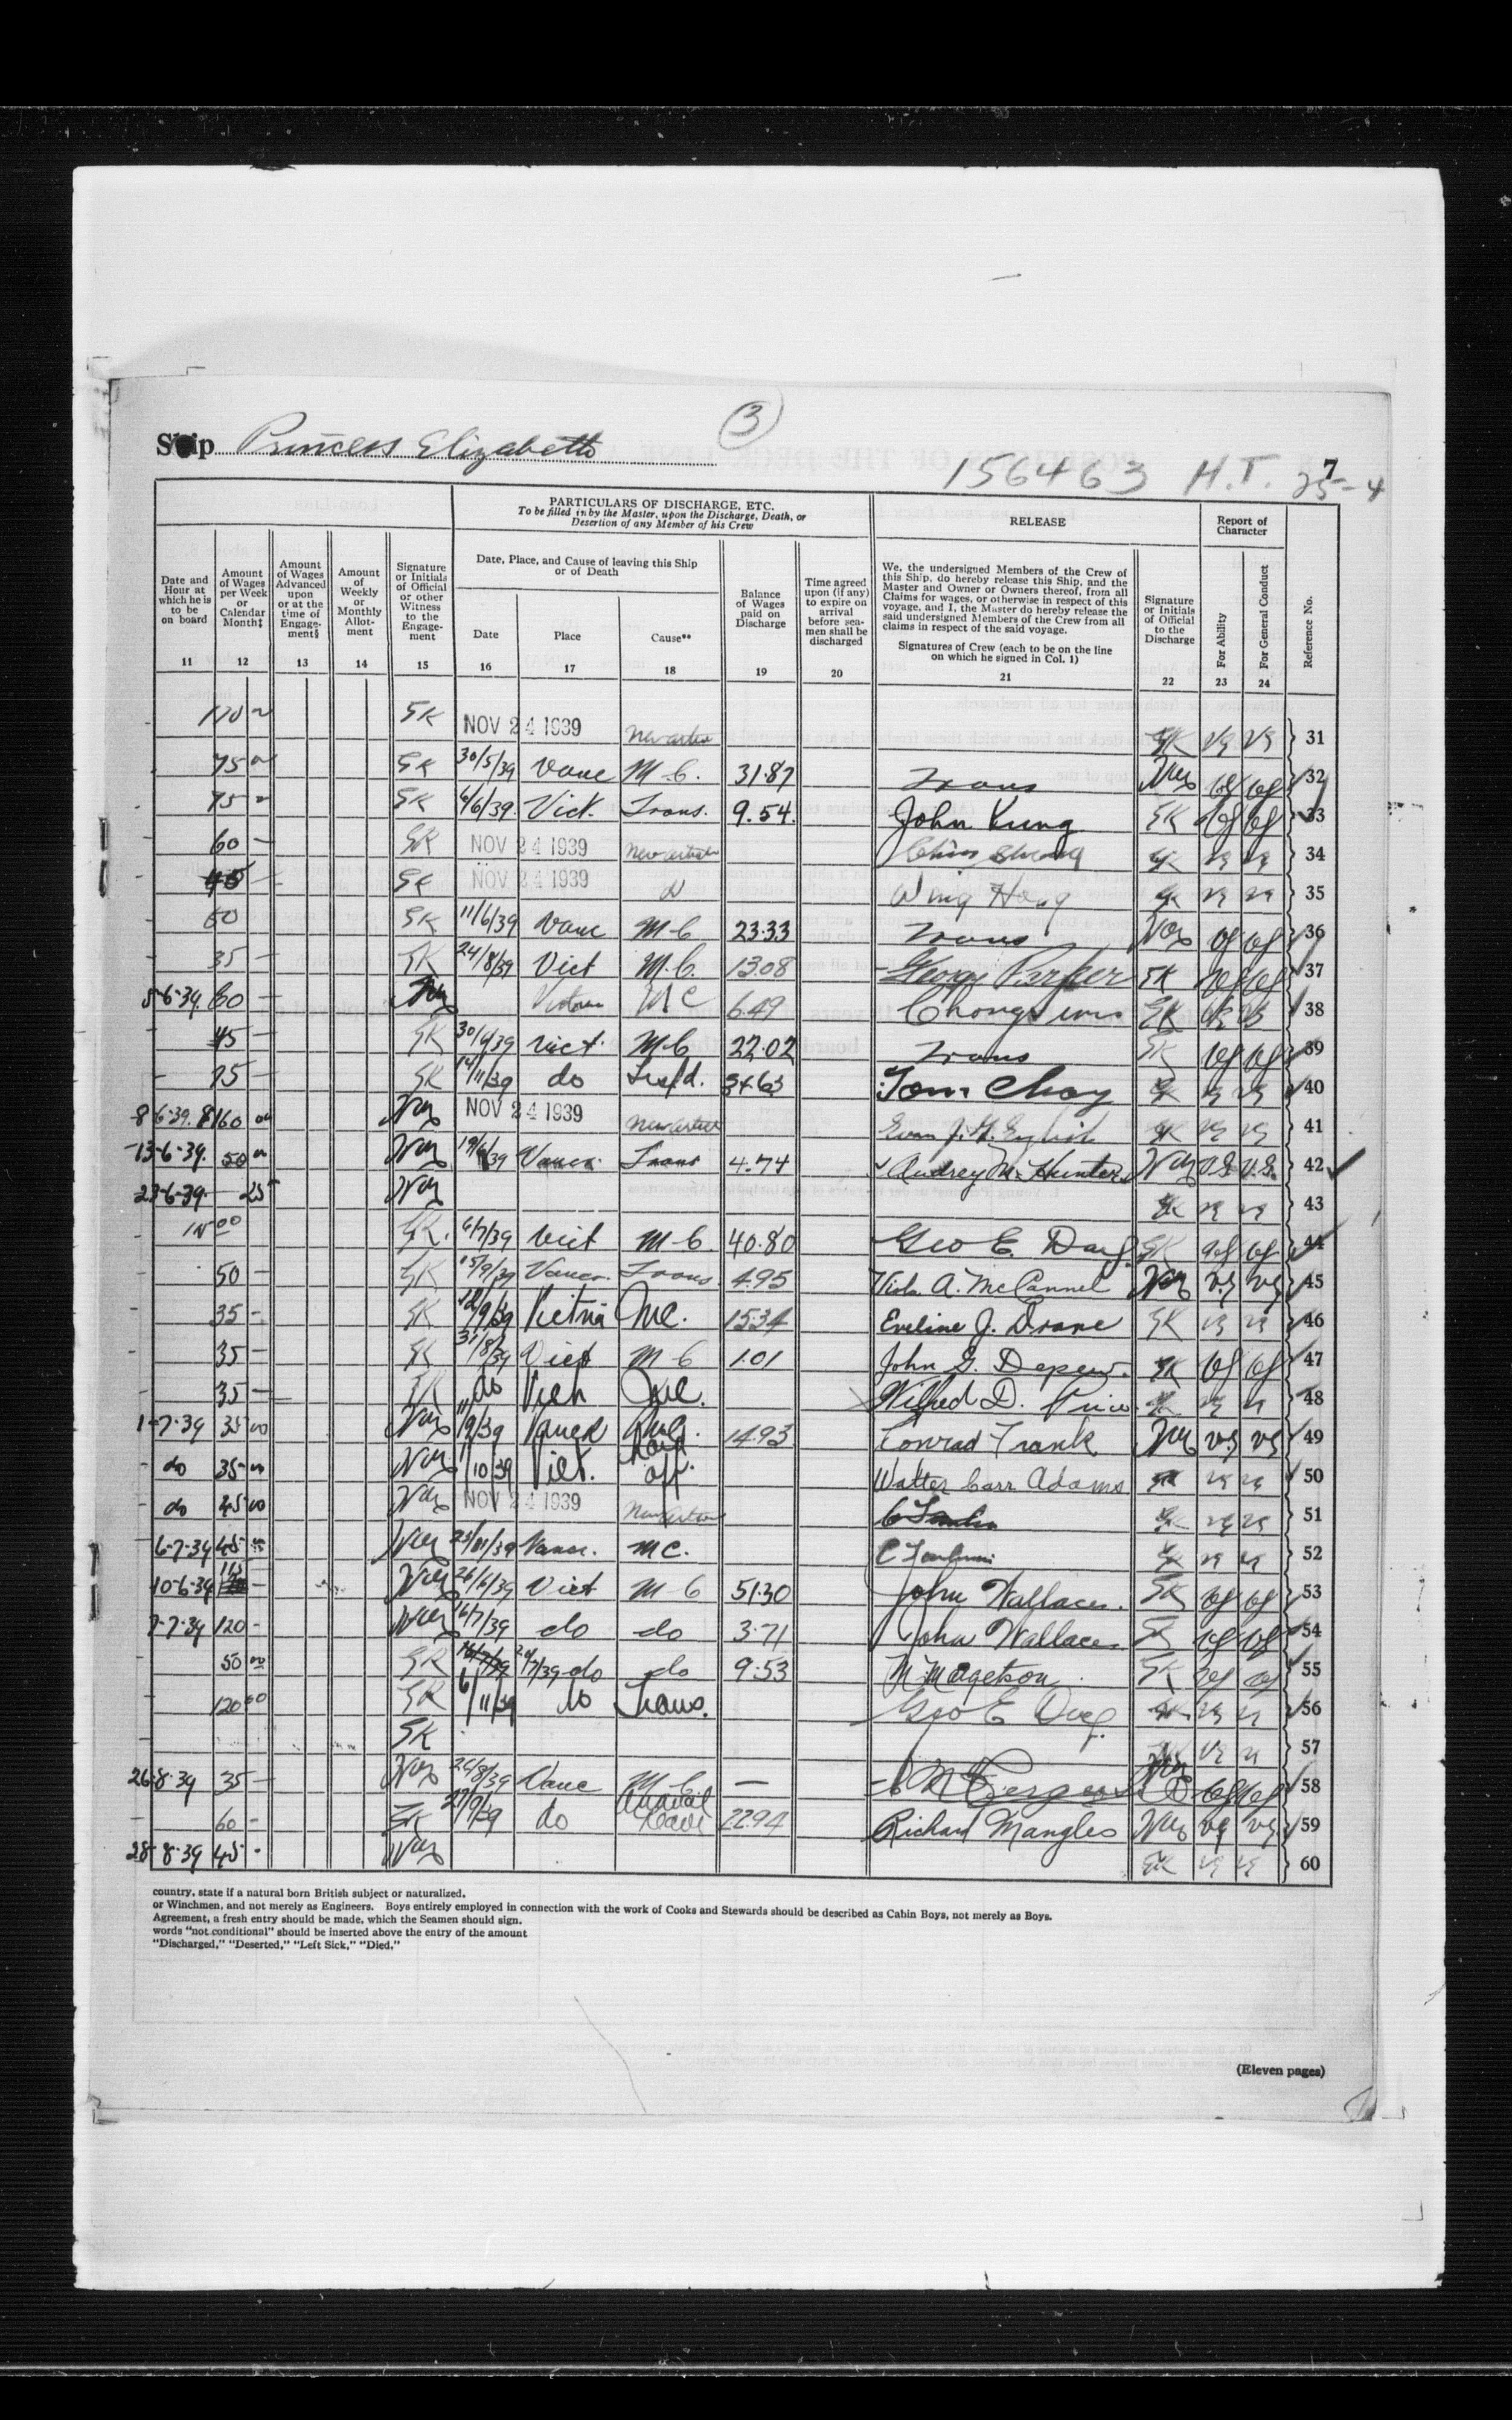 3
Ship Princess Elizabeth
156463 H.T. 25-4
7
PARTICULARS OF DISCHARGE, ETC.
To be filled in by the Master, upon the Discharge, Death, or
Desertion of any Member of his Crew
RELEASE
Report of
Character
Date and
Hour at
which he is
to be
on board
11
Amount
of Wages
per Week
or
Calendar
Month‡
12
Amount
of Wages
Advanced
upon
or at the
time of
Engage-
ment§
13
Amount
of
Weekly
or
Monthly
Allot-
ment
14
Signature
or Initials
of Official
or other
Witness
to the
Engage-
ment
15
Date, Place, and Cause of leaving this Ship
or of Death
Date
16
Place
17
Cause**
18
Balance
of Wages
paid on
Discharge
19
Time agreed
upon (if any)
to expire on
arrival
before sea-
men shall be
discharged
20
We, the undersigned Members of the Crew of
this Ship, do hereby release this Ship, and the
Master and Owner or Owners thereof, from all
Claims for wages, or otherwise in respect of this
voyage, and I, the Master do hereby release the
said undersigned Members of the Crew from all
claims in respect of the said voyage.
Signatures of Crew (each to be on the line
on which he signed in Col. 1)
21
Signature
or Initials
of Official
to the
Discharge
22
For Ability
23
For General Conduct
24
Reference No.
GK NOV 24 1939 GK vg vg 31
75 GK 30/5/39 Vanc M-C. 31.87 Trans vg vg 32
75 GK 6/6/39 Vict. Trans. 9.54 John Kung GK vg vg 33
60 GK NOV 24 1939 GK vg vg 34
45 GK NOV 24 1939 Wing Hong GK vg vg 35
50 GK 11/6/39 Vanc M-C 23.33 Trans vg vg 36
35 GK 24/8/39 Vict M.C. 13.08 George Parker GK vg vg 37
5-6-39 60 Victoria MC 6.49 GK vg vg 38
45 GK 30/6/39 Vict. M-C 22.02 Trans GK vg vg 39
75 GK 14/11/39 do 34.63 Tom Choy GK vg vg 40
8-6-39 160 NOV 24 1939 GK vg vg 41
13-6-39 50 19/6/39 Vancr. Trans 4.74 Audrey M. Hunter V.G. V.G. 42
23-6-39 25 GK vg vg 43
GK. 6/7/39 Vict M-C. 40.80 Geo E. GK vg vg 44
50 GK 15/9/39 Vancr. Trans. 4.95 A. McCannel vg vg 45
35 GK Victria MC. 15.34 Eveline J. Drane GK vg vg 46
35 GK 31/8/39 Vict M-C 1.01 John G. Depew. GK vg vg 47
35 GK do MC. Wilfred D. GK vg vg 48
1-7-39 35 00 11/9/39 14.93 Conrad Frank vg vg 49
do 35 00 10/39 Vict. Paid off. Walter Carr Adams GK vg vg 50
do 45 00 NOV 24 1939 GK vg vg 51
6-7-39 45 Vancr. MC. GK vg vg 52
10-6-39 26/6/39 Vict M-C 51.30 John Wallace. GK vg vg 53
7-7-39 120 16/7/39 do do 3.71 John Wallace GK vg vg 54
50 00 GK 24/7/39 do do 9.53 GK vg vg 55
120 00 GK 6/11/39 do Trans. Geo E GK vg vg 56
GK GK vg vg 57
26-8-39 35 26/8/39 Vanc M-C — vg vg 58
60 GK 27/9/39 do Annual Leave 22.94 Richard Mangles vg vg 59
28-8-39 45 GK vg vg 60
country, state if a natural born British subject or naturalized.
or Winchmen, and not merely as Engineers. Boys entirely employed in connection with the work of Cooks and Stewards should be described as Cabin Boys, not merely as Boys.
Agreement, a fresh entry should be made, which the Seamen should sign.
words "not conditional" should be inserted above the entry of the amount
"Discharged," "Deserted," "Left Sick," "Died."
(Eleven pages)